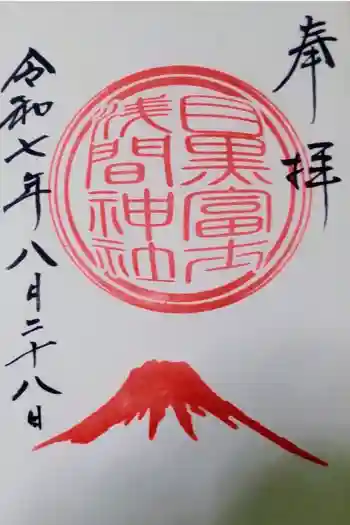 奉拝
目黒富士
浅間神社
令和七年八月二十八日